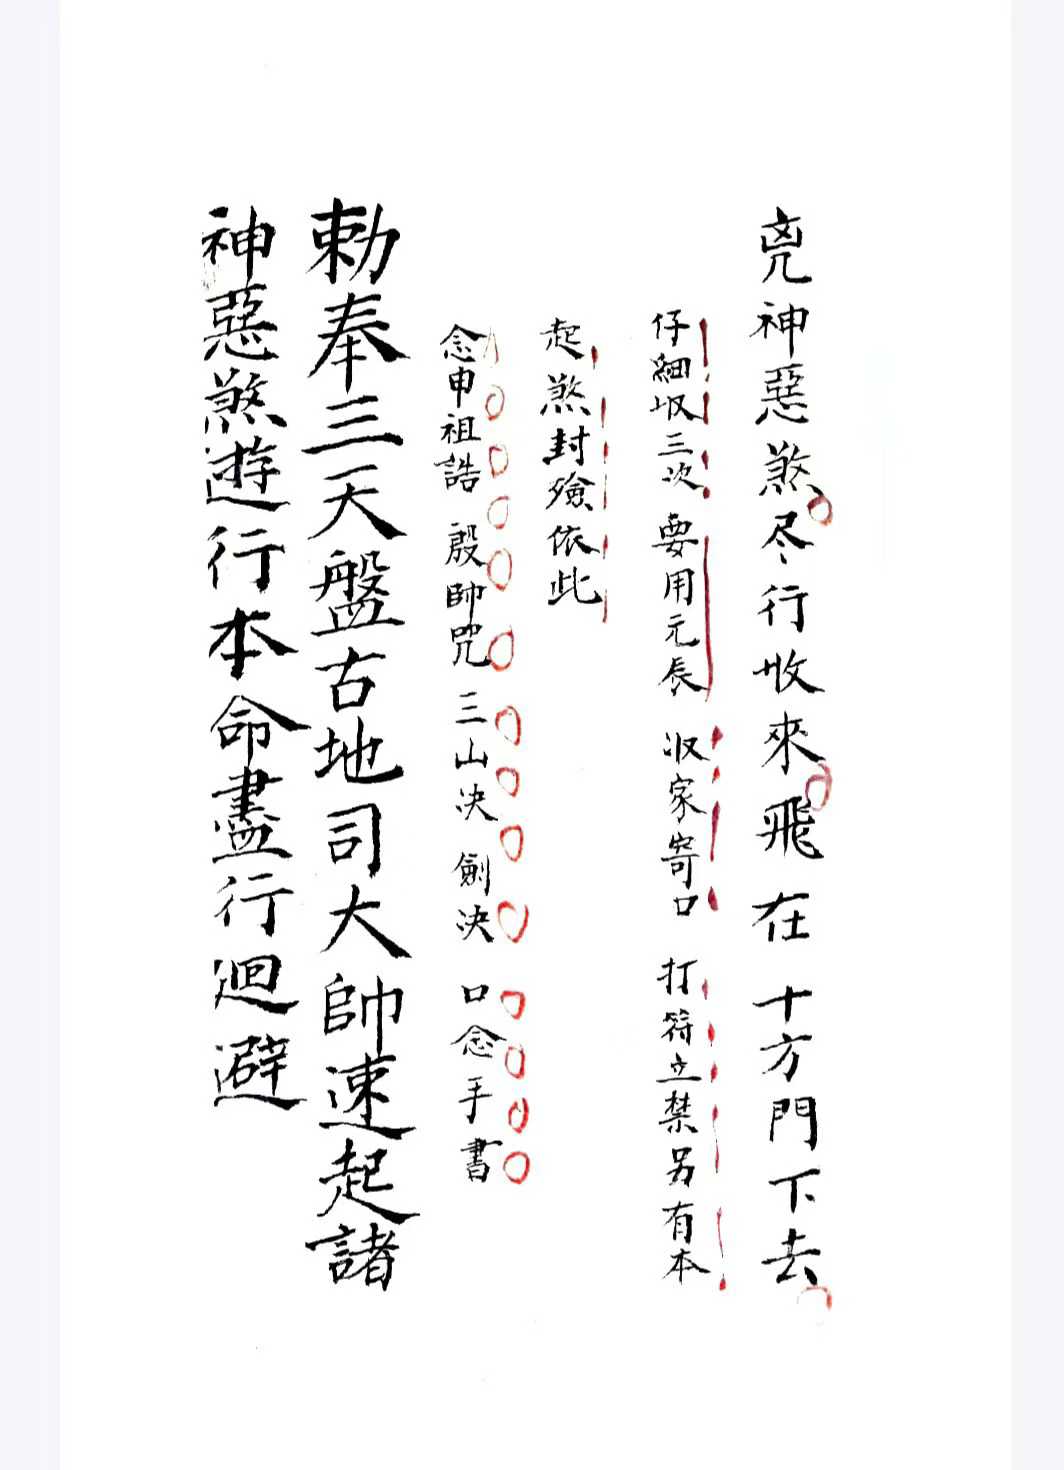 兇神惡煞尽行收來飛在十方門下去
仔細収三次 要用元辰 収家寄口 打符立禁另有本
起煞封殮依此
念申祖誥 殷帥咒 三山決 劍決 口念手書
勅奉三天盤古地司大帥速起諸
神惡煞遊行本命盡行迴避